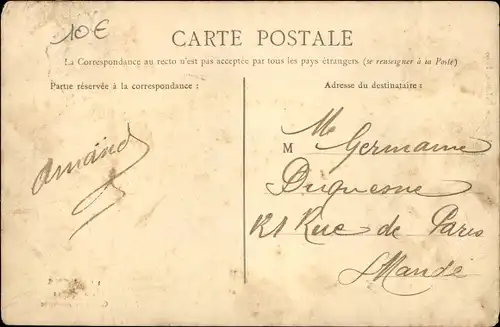 10€
CARTE POSTALE
La Correspondance au recto n'est pas acceptée par tous les pays étrangers (se renseigner à la Poste)
Partie réservée à la correspondance :
Adresse du destinataire :
Armand
M Lle Germaine
Duquesne
121 Rue de Paris
St Mandé